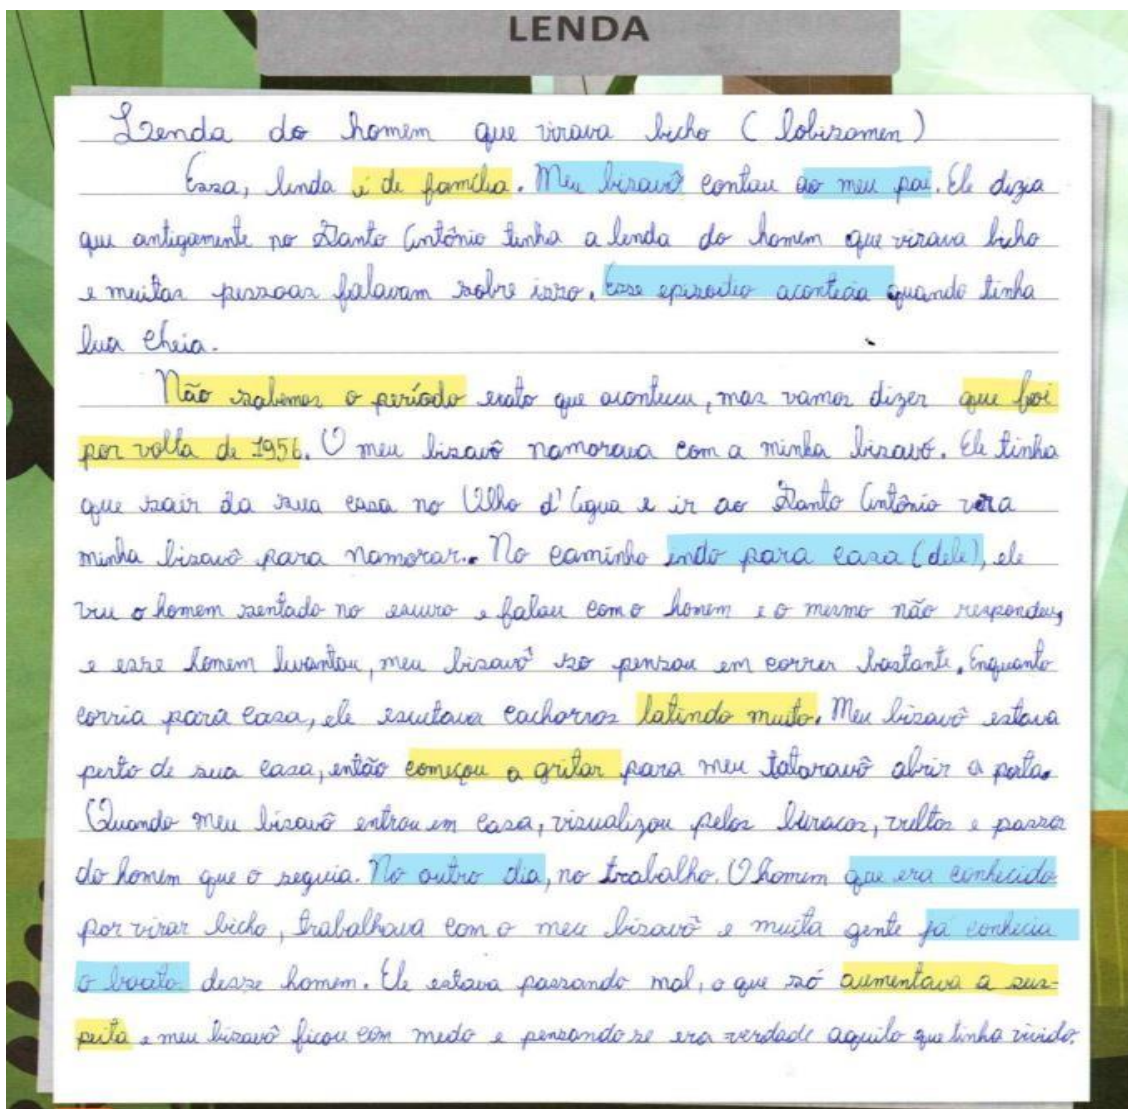 LENDA
Lenda do homem que virava bicho (lobizomen)
Essa, lenda é de família. Meu bisavô contou ao meu pai. Ele dizia
que antigamente no Santo Antônio tinha a lenda do homem que virava bicho
e muitas pessoas falavam sobre isso. Esse episodio acontecia quando tinha
lua cheia.
Não sabemos o período exato que aconteceu, mas vamos dizer que foi
por volta de 1956. O meu bisavô namorava com a minha bisavó. Ele tinha
que sair da sua casa no Olho d'Água e ir ao Santo Antônio ver a
minha bisavô para namorar.. No caminho indo para casa (dele), ele
viu o homem sentado no escuro e falou com o homem e o mesmo não respondeu,
e esse homem levantou, meu bisavô só pensou em correr bastante. Enquanto
corria para casa, ele escutava cachorros latindo muito. Meu bisavô estava
perto de sua casa, então começou a gritar para meu tataravô abrir a porta.
Quando meu bisavô entrou em casa, visualizou pelos buracos, vultos e passos
do homem que o seguia. No outro dia, no trabalho. O homem que era conhecido
por virar bicho, trabalhava com o meu bisavô e muita gente já conhecia
o boato desse homem. Ele estava passando mal, o que só aumentava a sus-
peita e meu bisavô ficou com medo e pensando se era verdade aquilo que tinha vivido.